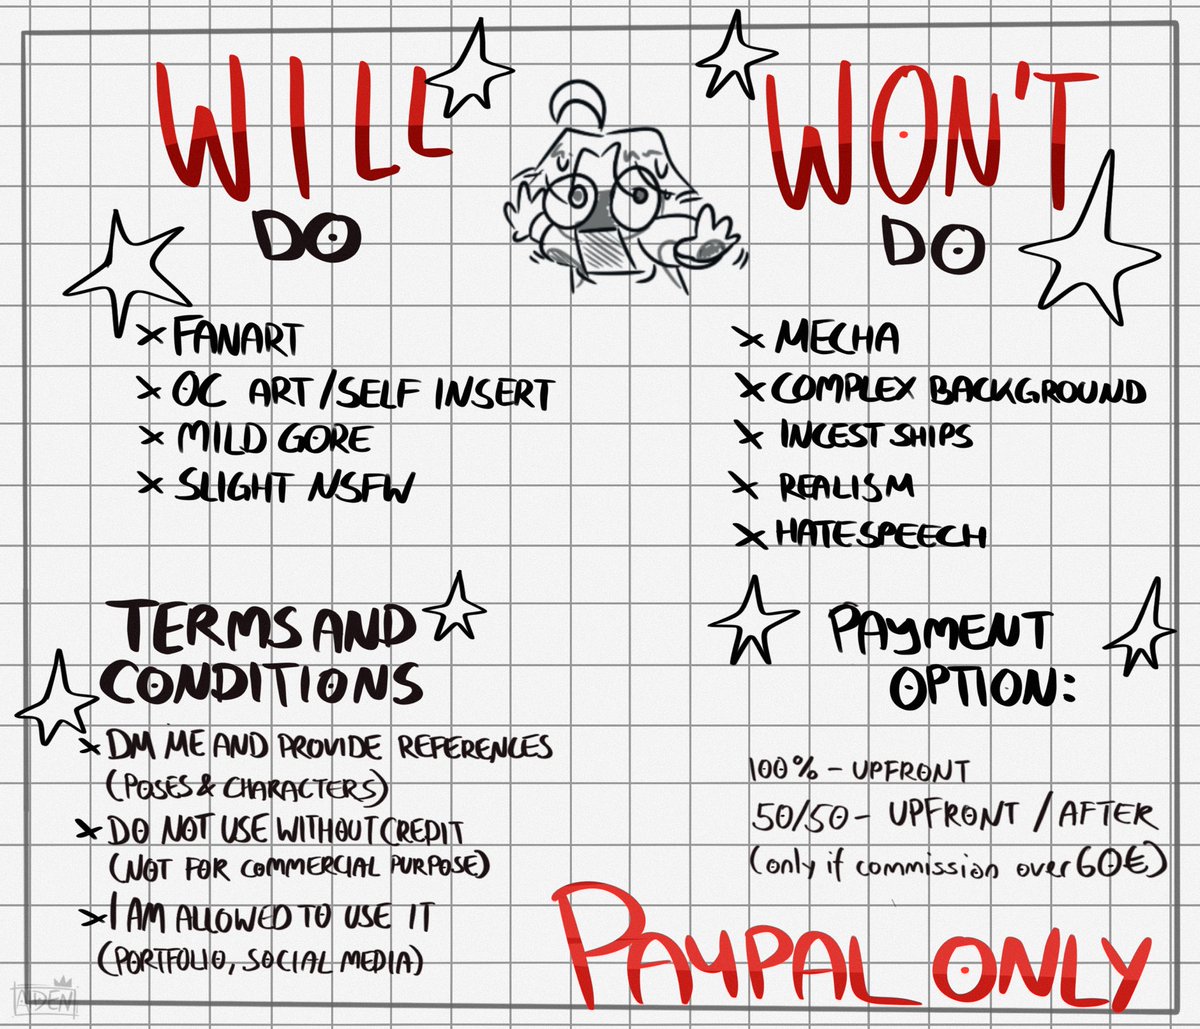 WILL
DO
× FANART
× OC ART/SELF INSERT
× MILD GORE
× SLIGHT NSFW
WON'T
DO
× MECHA
× COMPLEX BACKGROUND
× INCEST SHIPS
× REALISM
× HATESPEECH
TERMS AND
CONDITIONS
× DM ME AND PROVIDE REFERENCES
(POSES & CHARACTERS)
× DO NOT USE WITHOUT CREDIT
(NOT FOR COMMERCIAL PURPOSE)
× I AM ALLOWED TO USE IT
(PORTFOLIO, SOCIAL MEDIA)
PAYMENT
OPTION:
100% - UPFRONT
50/50 - UPFRONT / AFTER
(only if commission over 60€)
PAYPAL ONLY
ADEN